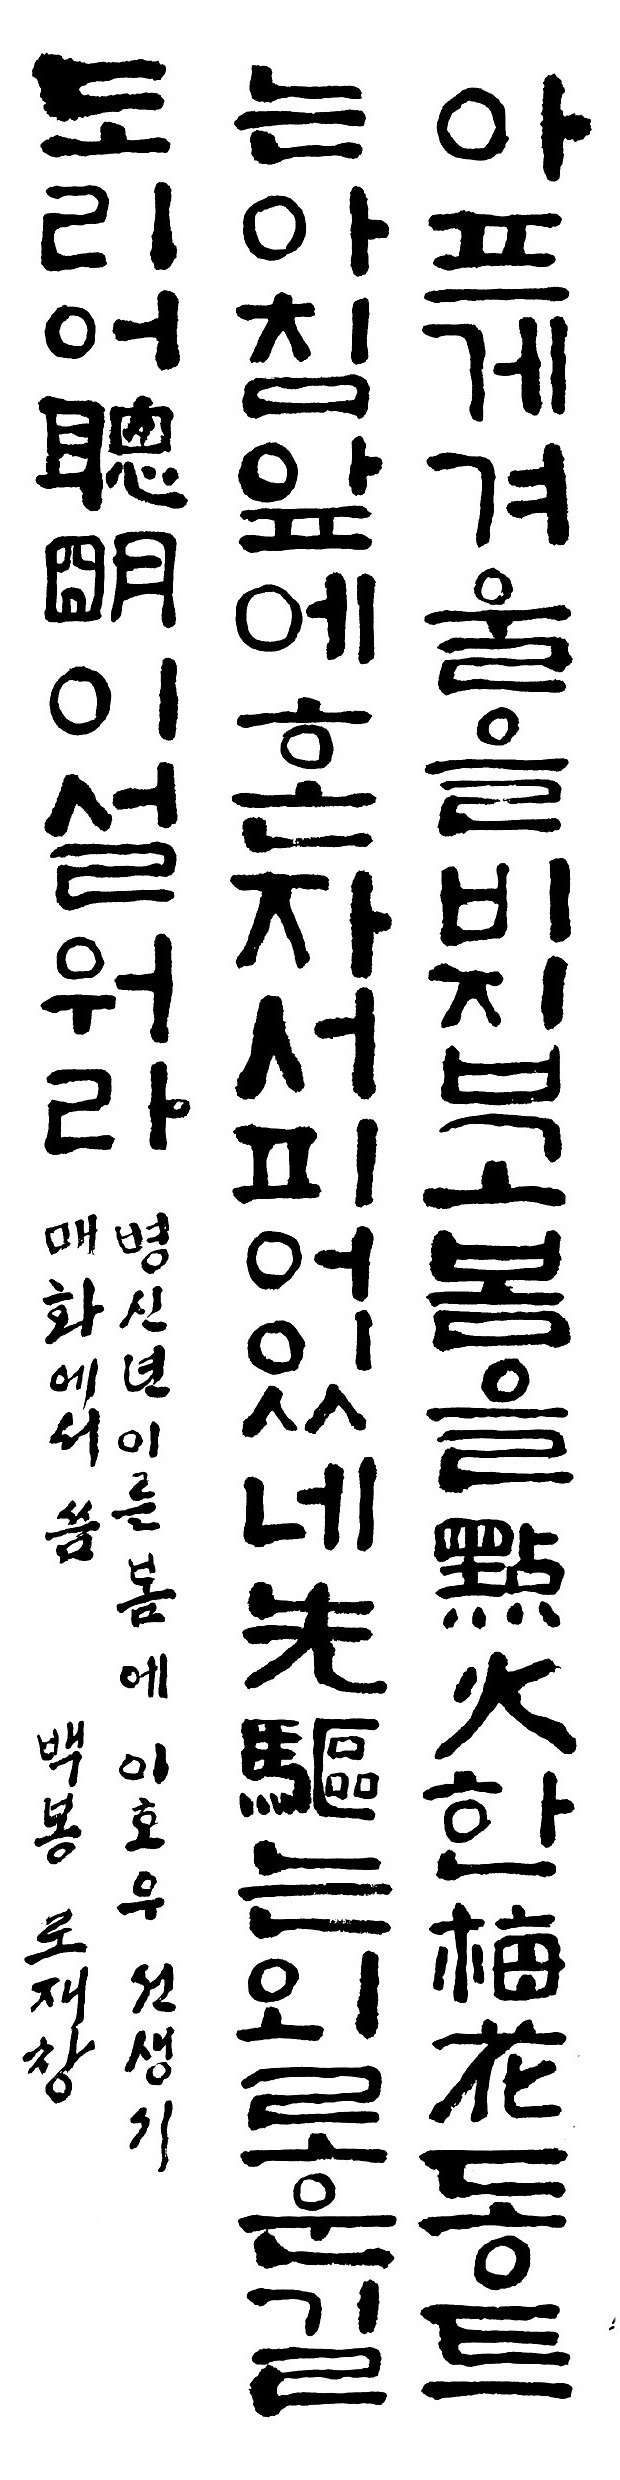 아프게겨울을비집고봄을點火한梅花동트
는아침앞에혼자서피어있네先驅는외로운길
도리어聰朙이설워라
병신년이른봄에 이호우 선생시
매화에서 씀 백봉 로재창